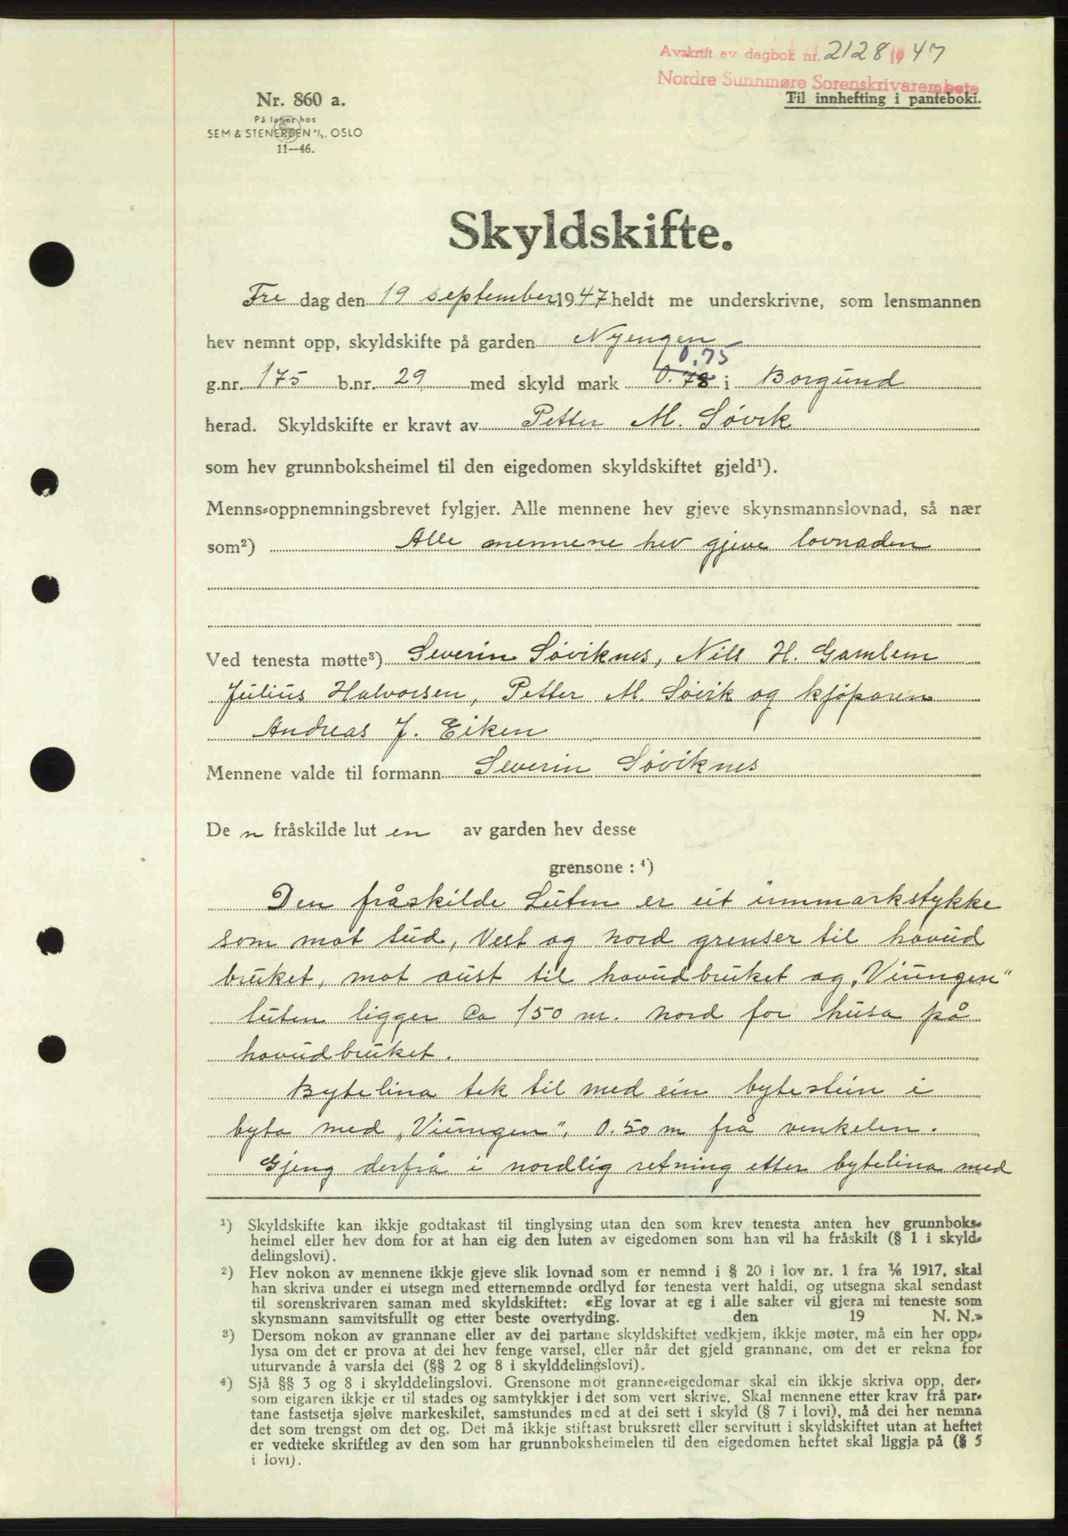 Avskrift av dagbok nr. 2128 1947
Nordre Sunnmøre Sorenskrivarembete
Nr. 860 a.
Til innhefting i panteboki.
På lager hos
SEM & STENERSEN A/S. OSLO
11—46.
Skyldskifte.
Fre dag den 19 september 1947 heldt me underskrivne, som lensmannen
hev nemnt opp, skyldskifte på garden Nyengen
0.75
g.nr. 175 b.nr. 29 med skyld mark 0.78 i Borgund
herad. Skyldskifte er kravt av Petter M. Søvik
som hev grunnboksheimel til den eigedomen skyldskiftet gjeld¹).
Menns-oppnemningsbrevet fylgjer. Alle mennene hev gjeve skynsmannslovnad, så nær
som²) Alle mennene hev gjeve lovnaden
Ved tenesta møtte³) Severin Søviknes, Nils H. Gamlem
Julius Halvorsen, Petter M. Søvik og kjøparen
Andreas J. Eiken
Mennene valde til formann Severin Søviknes
De n fråskilde lut en av garden hev desse
grensone : ⁴)
Den fråskilde Luten er eit innmarkstykke
som mot Sud, Vest og nord grenser til hovud
bruket, mot aust til hovudbruket og „Viungen"
luten ligger Ca 150 m. nord for husa på
hovudbruket.
Bytelina tek til med ein bytestein i
byta med „Viungen", 0.50 m frå vinkelen.
Gjeng derfrå i nordlig retning etter bytelina med
¹) Skyldskifte kan ikkje godtakast til tinglysing utan den som krev tenesta anten hev grunnboks-
heimel eller hev dom for at han eig den luten av eigedomen som han vil ha fråskilt (§ 1 i skyld-
delingslovi).
²) Hev nokon av mennene ikkje gjeve slik lovnad som er nemnd i § 20 i lov nr. 1 fra ¹⁄₆ 1917, skal
han skriva under ei utsegn med etternemnde ordlyd før tenesta vert haldi, og utsegna skal sendast
til sorenskrivaren saman med skyldskiftet: «Eg lovar at eg i alle saker vil gjera mi teneste som
skynsmann samvitsfullt og etter beste overtyding. den 19 N. N.»
³) Dersom nokon av grannane eller av dei partane skyldskiftet vedkjem, ikkje møter, må ein her opp-
lysa om det er prova at dei hev fenge varsel, eller når det gjeld grannane, om det er rekna for
uturvande å varsla dei (§§ 2 og 8 i skylddelingslovi).
⁴) Sjå §§ 3 og 8 i skylddelingslovi. Grensone mot granne-eigedomar skal ein ikkje skriva opp, der-
som eigaren ikkje er til stades og samtykkjer i det som vert skrive. Skal mennene etter krav frå par-
tane fastsetja sjølve markeskilet, samstundes med at dei sett i skyld (§ 7 i lovi), må dei her nemna
det som trengst om det og. Det må ikkje stiftast bruksrett eller servitutt i skyldskiftet utan at heftet
er vedteke skriftleg av den som har grunnboksheimelen til den eigedomen heftet skal liggja på (§ 5
i lovi).